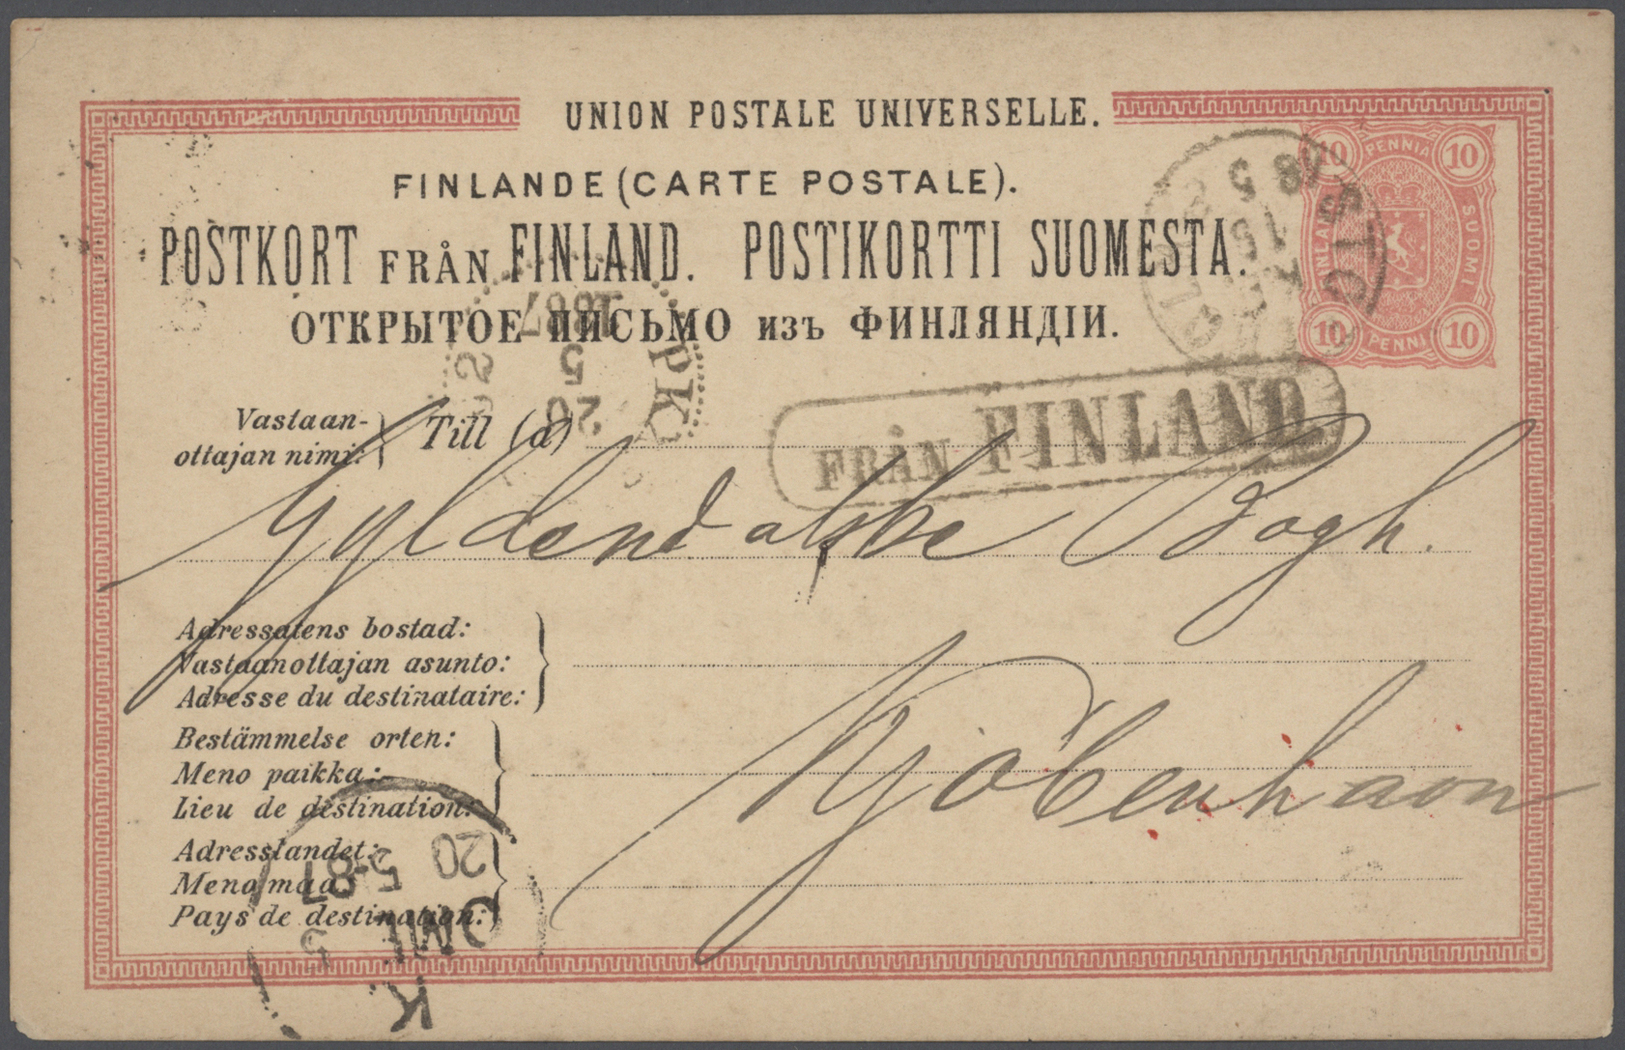 UNION POSTALE UNIVERSELLE.
FINLANDE (CARTE POSTALE).
POSTKORT FRÅN FINLAND. POSTIKORTTI SUOMESTA.
ОТКРЫТОЕ ПИСЬМО изъ ФИНЛЯНДІИ.
10 PENNIÄ 10
FINLAND SUOMI
10 PENNI 10
1887
5
20
FRÅN FINLAND
Vastaan-
ottajan nimi: Till (à)
Gyldendalske Bogh.
Adressatens bostad:
Vastaanottajan asunto:
Adresse du destinataire:
Kjöbenhavn
Bestämmelse orten:
Meno paikka:
Lieu de destination:
Adresslandet:
Meno maa:
Pays de destination:
20 5-87
OMB
K